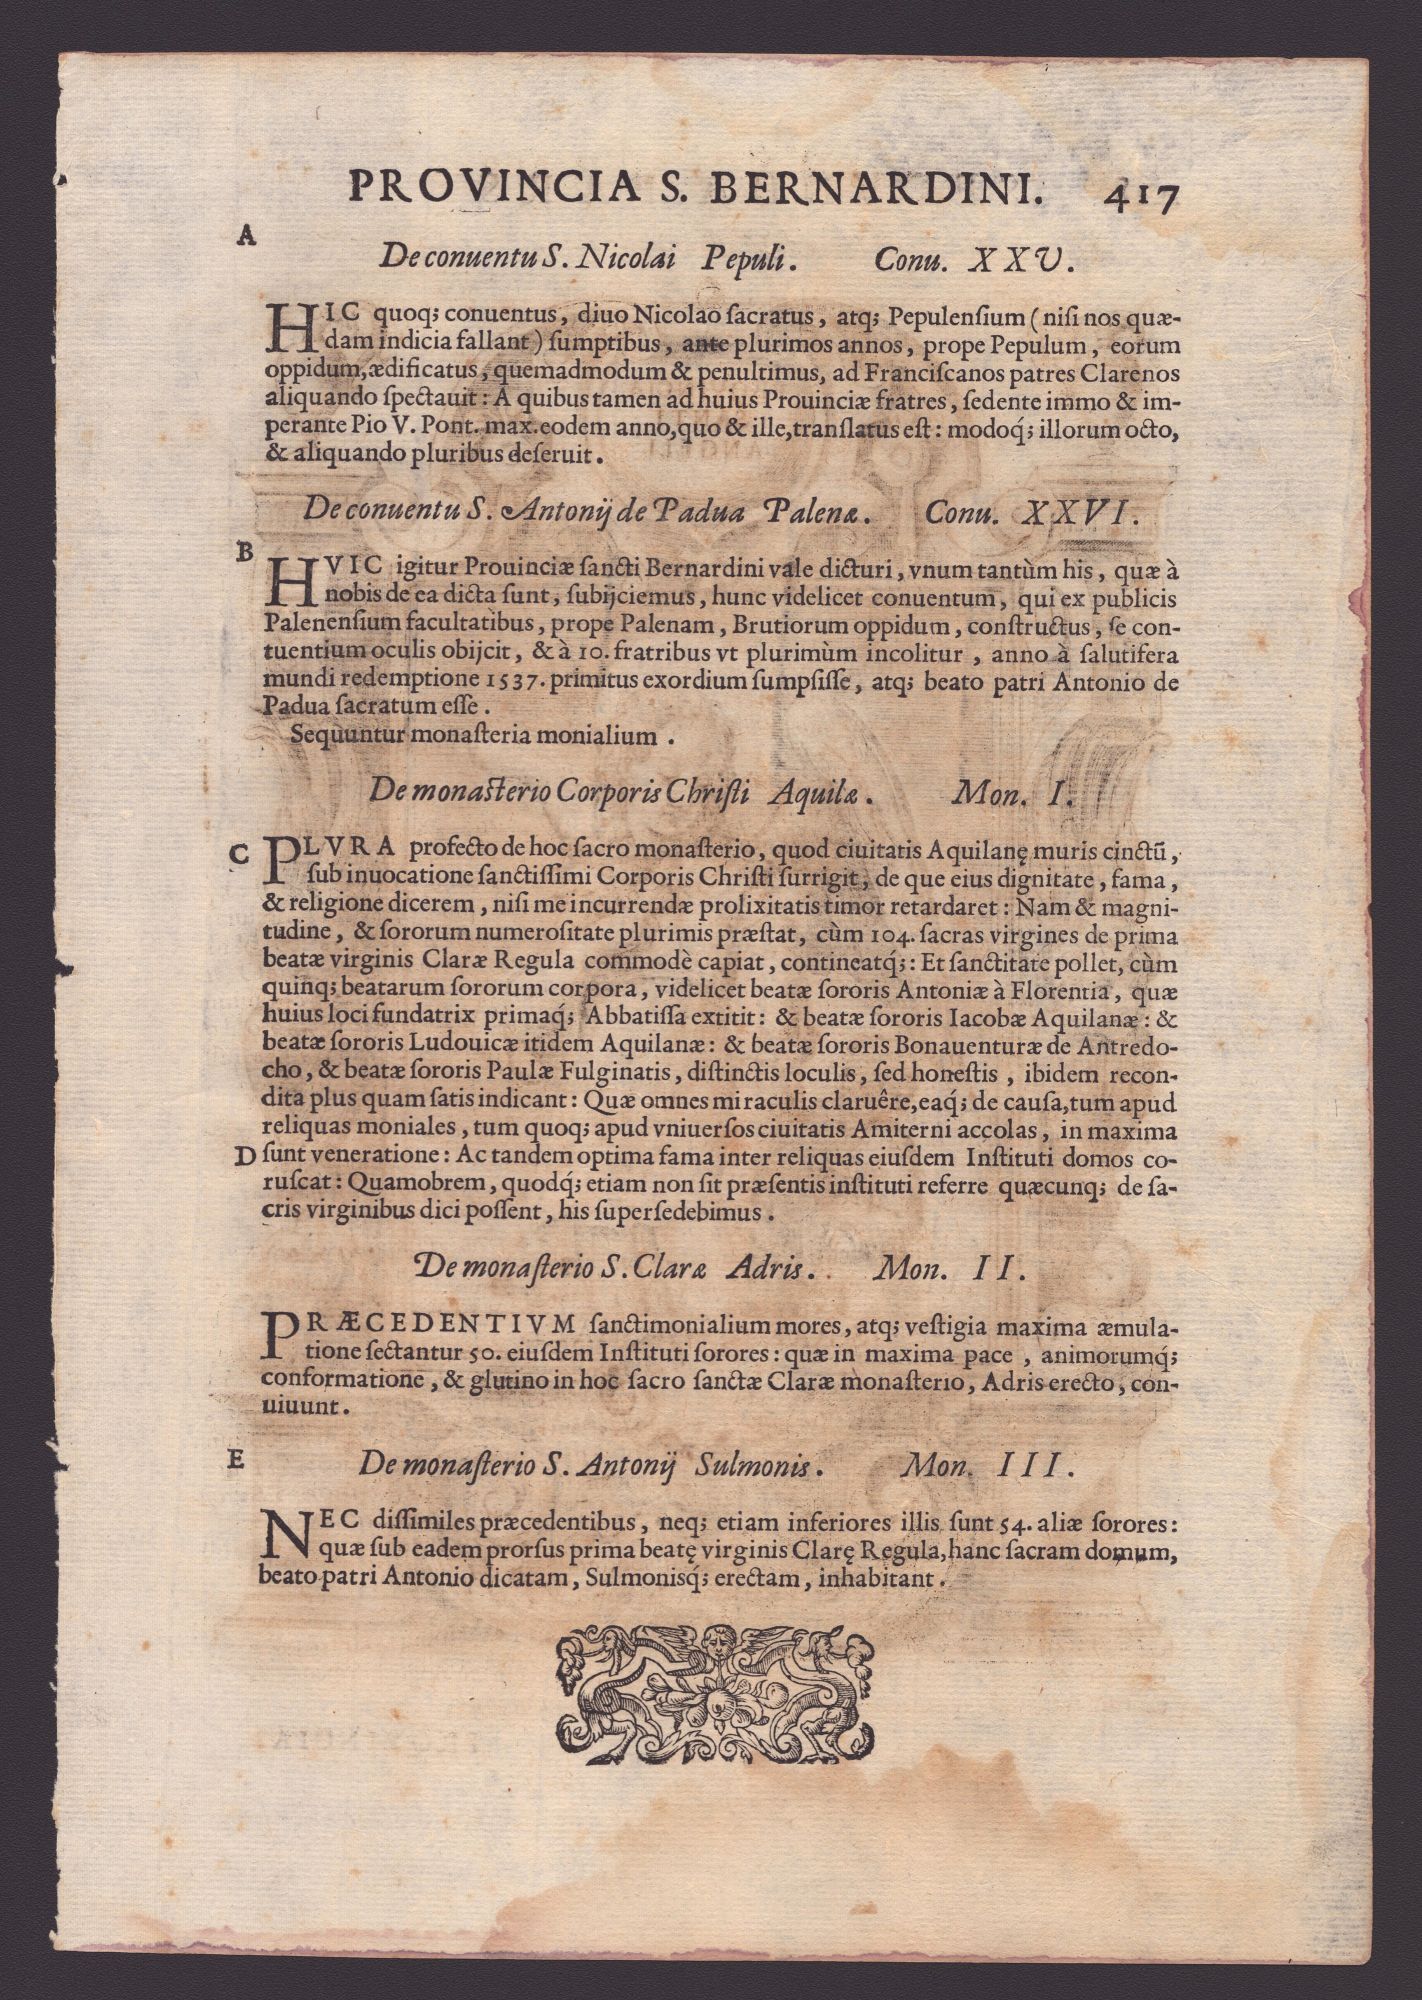 PROVINCIA S. BERNARDINI. 417
A
De conuentu S. Nicolai Pepuli. Conu. XXV.
HIC quoq; conuentus, diuo Nicolao sacratus, atq; Pepulensium (nisi nos quæ-
dam indicia fallant) sumptibus, ante plurimos annos, prope Pepulum, eorum
oppidum, ædificatus, quemadmodum & penultimus, ad Franciscanos patres Clarenos
aliquando spectauit: A quibus tamen ad huius Prouinciæ fratres, sedente immo & im-
perante Pio V. Pont. max. eodem anno, quo & ille, translatus est: modoq́; illorum octo,
& aliquando pluribus deseruit.
De conuentu S. Antonij de Padua Palenæ. Conu. XXVI.
B
HVIC igitur Prouinciæ sancti Bernardini vale dicturi, vnum tantùm his, quæ à
nobis de ea dicta sunt, subijciemus, hunc videlicet conuentum, qui ex publicis
Palenensium facultatibus, prope Palenam, Brutiorum oppidum, constructus, se con-
tuentium oculis obijcit, & à 10. fratribus vt plurimùm incolitur, anno à salutifera
mundi redemptione 1537. primitus exordium sumpsisse, atq; beato patri Antonio de
Padua sacratum esse.
Sequuntur monasteria monialium.
De monasterio Corporis Christi Aquilæ. Mon. I.
C PLVRA profecto de hoc sacro monasterio, quod ciuitatis Aquilanę muris cinctũ,
sub inuocatione sanctissimi Corporis Christi surrigit, de que eius dignitate, fama,
& religione dicerem, nisi me incurrendæ prolixitatis timor retardaret: Nam & magni-
tudine, & sororum numerositate plurimis præstat, cùm 104. sacras virgines de prima
beatæ virginis Claræ Regula commodè capiat, contineatq́;: Et sanctitate pollet, cùm
quinq; beatarum sororum corpora, videlicet beatæ sororis Antoniæ à Florentia, quæ
huius loci fundatrix primaq́; Abbatissa extitit: & beatæ sororis Iacobæ Aquilanæ: &
beatæ sororis Ludouicæ itidem Aquilanæ: & beatæ sororis Bonauenturæ de Antredo-
cho, & beatæ sororis Paulæ Fulginatis, distinctis loculis, sed honestis, ibidem recon-
dita plus quam satis indicant: Quæ omnes miraculis claruêre, eaq́; de causa, tum apud
reliquas moniales, tum quoq; apud vniuersos ciuitatis Amiterni accolas, in maxima
D sunt veneratione: Ac tandem optima fama inter reliquas eiusdem Instituti domos co-
ruscat: Quamobrem, quodq́; etiam non sit præsentis instituti referre quæcunq; de sa-
cris virginibus dici possent, his supersedebimus.
De monasterio S. Claræ Adris. Mon. II.
PRÆCEDENTIVM sanctimonialium mores, atq; vestigia maxima æmula-
tione sectantur 50. eiusdem Instituti sorores: quæ in maxima pace, animorumq́;
conformatione, & glutino in hoc sacro sanctæ Claræ monasterio, Adris erecto, con-
uiuunt.
E
De monasterio S. Antonij Sulmonis. Mon. III.
NEC dissimiles præcedentibus, neq; etiam inferiores illis sunt 54. aliæ sorores:
quæ sub eadem prorsus prima beatę virginis Clarę Regula, hanc sacram domum,
beato patri Antonio dicatam, Sulmonisq́; erectam, inhabitant.